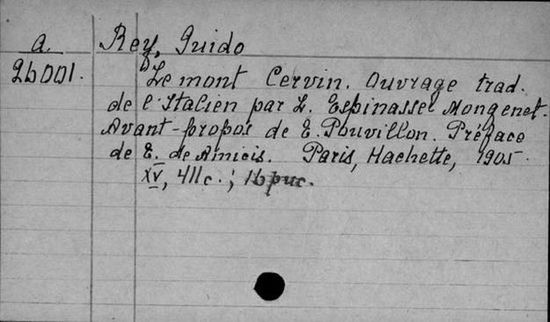 a. Rey, Guido
26001. Le mont Cervin. Ouvrage trad.
de l'Italien par L. Espinasse Mongenet.
Avant-propos de E. Pouvillon. Préface
de E. de Amicis. Paris, Hachette, 1905.
XV, 411 c.; 16 рис.